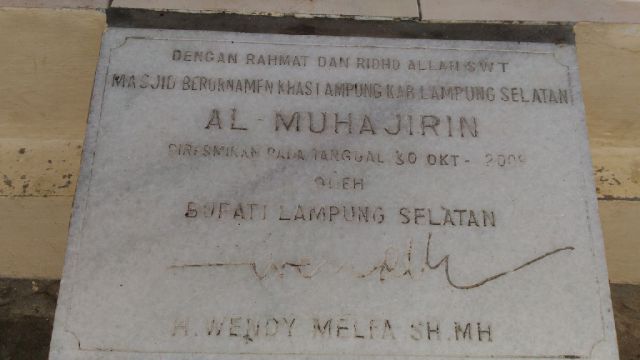 DENGAN RAHMAT DAN RIDHO ALLAH SWT
MASJID BERORNAMEN KHAS LAMPUNG KAB LAMPUNG SELATAN
AL-MUHAJIRIN
DIRESMIKAN PADA TANGGAL 30 OKT - 2009
OLEH
BUPATI LAMPUNG SELATAN
H. WENDY MELFA SH.MH